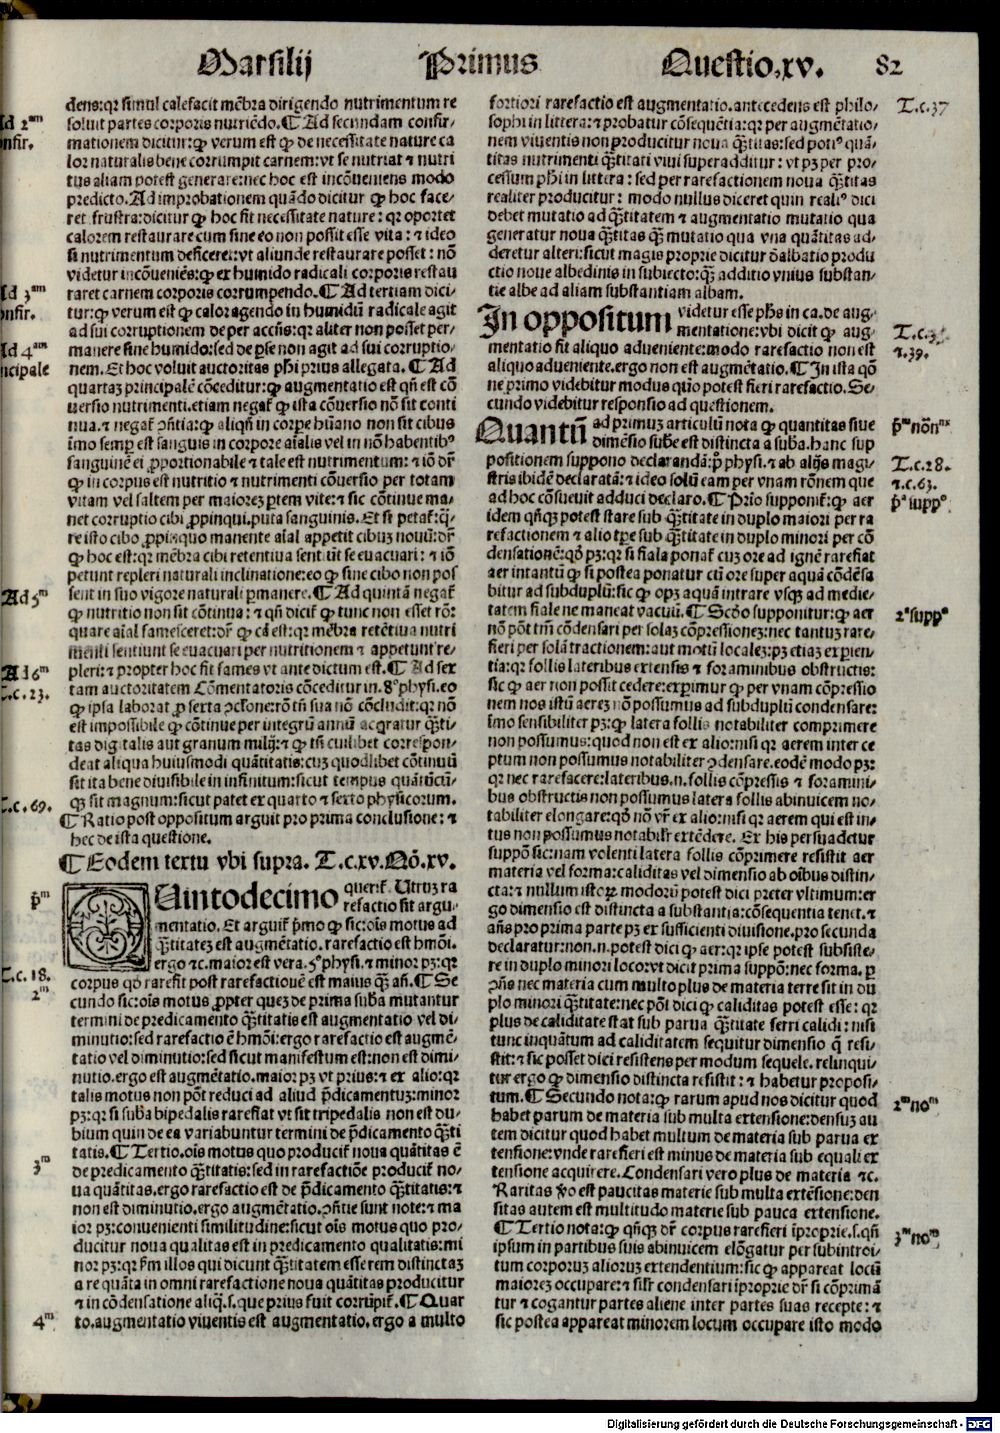 Marsilij Primus Questio.xv. 82
dens:qr simul calefacit mēbra dirigendo nutrimentum re
soluit partes corporis nutriēdo.¶Ad secundam confir-
mationem dicitur:ꝙ verum est ꝙ de necessitate nature ca
lor naturalis bene corrumpit carnem:vt se nutriat ⁊ nutri
tus aliam potest generare:nec hoc est incōueniens modo
predicto.Ad improbationem quādo dicitur ꝙ hoc face-
ret frustra:dicitur ꝙ hoc fit necessitate nature: qr oportet
calorem restaurare cum sine eo non possit esse vita: ⁊ ideo
si nutrimentum deficeret:vt aliunde restaurare posset: nō
videtur incōueniēs:ꝙ ex humido radicali corporis restau
raret carnem corporis corrumpendo.¶Ad tertiam dici-
tur:ꝙ verum est ꝙ calor agendo in humidū radicale agit
ad sui corruptionem de per accn̄s:qr aliter non posset per-
manere sine humido:sed de ꝑse non agit ad sui corruptio-
nem. Et hoc voluit auctoritas phi prius allegata.¶Ad
quartaꝫ principalē cōceditur:ꝙ augmentatio est qn̄ est cō
uersio nutrimenti.etiam negat ꝙ ista cōuersio nō sit conti
nua.⁊ negat ꝯn̄tia:ꝙ aliqn̄ in corpe hūano non sit cibus
īmo semꝑ est sanguis in corpore aīalis vel in nō habentibꝰ
sanguinē ei ꝓportionabile ⁊ tale est nutrimentum: ⁊ iō dr̄
ꝙ in corpus est nutritio ⁊ nutrimenti cōuersio per totam
vitam vel saltem per maiorē ptem vite:⁊ sic cōtinue ma-
net corruptio cibi ꝓpinqui.puta sanguinis. Et si petat:q̄-
re isto cibo ꝓpinquo manente aīal appetit cibuꝫ nouū:dr̄
ꝙ hoc est:qr mēbra cibi retentiua sentiūt se euacuari: ⁊ iō
petunt repleri naturali inclinatione:eo ꝙ sine cibo non pos
sent in suo vigore naturali ꝑmanere.¶Ad quintā negat
ꝙ nutritio non sit cōtinua: ⁊ qn̄ dicit ꝙ tunc non esset rō:
quare aīal famesceret:dr̄ ꝙ cā est:qr mēbra retētiua nutri
menti sentiunt se euacuari per nutritionem ⁊ appetunt re-
pleri:⁊ propter hoc fit fames vt ante dictum est.¶Ad sex
tam auctoritatem Cōmentatoris cōceditur in.8°physi.eo
ꝙ ipsa laborat ꝓ sexta ꝯclone:rō tn̄ sua nō cōcludit:qr nō
est impossibile ꝙ cōtinue per integrū annū acqratur q̄ti-
tas digitalis aut granum milij:⁊ ꝙ tn̄ cuilibet correspon-
deat aliqua huiusmodi quātitatis:cuꝫ quodlibet cōtinuū
sit ita bene diuisibile in infinitum:sicut tempus quātūcū-
qꝫ sit magnum:sicut patet ex quarto ⁊ sexto physicorum.
¶Ratio post oppositum arguit pro prima conclusione: ⁊
hec de ista questione.
¶Eodem textu vbi supra. T.c.xv.Nō.xv.
Quintodecimo querit. Utruꝫ ra
refactio sit argu-
mentatio. Et arguit p̄mo ꝙ sic:oīs motus ad
q̄titateꝫ est augmētatio.rarefactio est hmōi.
ergo ⁊c.maior est vera.5°physi.⁊ minor pꝫ:qr
corpus qd̄ rarefit post rarefactionē est maius q̄ an̄.¶Se
cundo sic:oīs motus ꝓpter quez de prima suba mutantur
termini de predicamento q̄titatis est augmentatio vel di-
minutio:sed rarefactio ē hmōi:ergo rarefactio est augmē-
tatio vel diminutio:sed sicut manifestum est:non est dimi-
nutio.ergo est augmētatio.maior pꝫ vt prius:⁊ ex alio:qr
talis motus non pōt reduci ad aliud p̄dicamentuꝫ:minor
pꝫ:qr si suba bipedalis rarefiat vt sit tripedalis non est du-
bium quin de ea variabuntur termini de p̄dicamento q̄ti
tatis.¶Tertio.oīs motus quo producit noua quātitas ē
de predicamento q̄titatis:sed in rarefactiōe producit no-
ua quātitas.ergo rarefactio est de p̄dicamento q̄titatis:⁊
non est diminutio.ergo augmētatio.ꝯn̄tie sunt note:⁊ ma
ior pꝫ:conuenienti similitudine:sicut oīs motus quo pro-
ducitur noua qualitas est in predicamento qualitatis:mi
nor pꝫ:qr ẜm illos qui dicunt q̄titatem esse rem distinctaꝫ
a re quāta in omni rarefactione noua quātitas producitur
⁊ in cōdensatione aliq.s.que prius fuit corrūpit.¶Quar
to.augmentatio viuentis est augmentatio.ergo a multo
Ad 2am
confir.
Ad 3am
confir.
Ad 4am
principale
Ad 5m
Ad 6m
T.c.23.
T.c.69.
p̄m
T.c.18.
2m
3m
4m
fortiori rarefactio est augmentatio.antecedens est philo-
sophi in littera:⁊ probatur cōsequētia:qr per augmētatio-
nem viuentis non producitur noua q̄titas:sed potiꝰ quā-
titas nutrimenti q̄titati viui superadditur: vt pꝫ per pro-
cessum phi in littera: sed per rarefactionem noua q̄titas
realiter producitur: modo nullus diceret quin realiꝰ dici
debet mutatio ad q̄titatem ⁊ augmentatio mutatio qua
generatur noua q̄titas q̄ mutatio qua vna quātitas ad-
deretur alteri:sicut magis proprie dicitur dealbatio produ
ctio noue albedinis in subiecto:q̄ additio vnius substan-
tie albe ad aliam substantiam albam.
In oppositum videtur esse phs in ca.de aug-
mentatione:vbi dicit ꝙ aug-
mentatio fit aliquo adueniente:modo rarefactio non est
aliquo adueniente.ergo non est augmētatio.¶In ista qō
ne primo videbitur modus quo potest fieri rarefactio. Se-
cundo videbitur responsio ad questionem.
Quantū ad primuꝫ articulū nota ꝙ quantitas siue
dimēsio sube est distincta a suba.hanc sup
positionem suppono declarandā:p° physi.⁊ ab alijs magi-
stris ibidē declaratā:⁊ ideo solū eam per vnam rōnem que
ad hoc cōsueuit adduci declaro.¶Prīo supponit: ꝙ aer
idem qn̄qꝫ potest stare sub q̄titate in duplo maiori per ra
refactionem ⁊ alio tꝑe sub q̄titate in duplo minori per cō
densationē:qd̄ pꝫ:qr si fiala ponat cuꝫ ore ad ignē rarefiat
aer intantū ꝙ si postea ponatur cū ore super aquā cōdēsa
bitur ad subduplū:sic ꝙ opꝫ aquā intrare vsqꝫ ad medie-
tatem fiale ne maneat vacuū.¶Scdo supponitur:ꝙ aer
nō pōt tm̄ cōdensari per solaꝫ cōpressioneꝫ:nec tantuꝫ rare-
fieri per solā tractionem:aut motū localeꝫ:pꝫ etiaꝫ experien-
tia:qr follis lateribus extensis ⁊ foraminibus obstructis:
sic ꝙ aer non possit cedere:experimur ꝙ per vnam cōpressio
nem nos istū aereꝫ nō possumus ad subduplū condensare:
īmo sensibiliter pꝫ:ꝙ latera follis notabiliter comprimere
non possumus:quod non est ex alio:nisi qr aerem inter ce
ptum non possumus notabiliter ꝯdensare.eodē modo pꝫ:
qr nec rarefacere:lateribus.n.follis cōpressis ⁊ forami-
bus obstructis non possumus latera follis abinuicem no-
tabiliter elongare:qd̄ nō vr̄ ex alio:nisi qr aerem qui est in-
tus non possumus notabilr̄ extēdere. Ex his persuadetur
suppō sic:nam volenti latera follis cōprimere resistit aer
materia vel forma:caliditas vel dimensio ab oībus distin-
cta:⁊ nullum istoꝝ modorū potest dici preter vltimum:er
go dimensio est distincta a substantia:cōsequentia tenet.⁊
an̄s pro prima parte pꝫ ex sufficienti diuisione.pro secunda
declaratur:non.n.potest dici ꝙ aer:qr ipse potest subsiste-
re in duplo minori loco:vt dicit prima suppō:nec forma.ꝑ
ꝯn̄s nec materia cum multo plus de materia terre sit in du
plo minori q̄titate:nec pōt dici ꝙ caliditas potest esse: qr
plus de caliditate stat sub parua q̄titate ferri calidi: nisi
tunc inquātum ad caliditatem sequitur dimensio q̄ resi-
stit:⁊ sic posset dici resistens per modum sequele. relinqui-
tur ergo ꝙ dimensio distincta resistit: ⁊ habetur proposi-
tum.¶Secundo nota:ꝙ rarum apud nos dicitur quod
habet parum de materia sub multa extensione:densuꝫ au
tem dicitur quod habet multum de materia sub parua ex
tensione:vnde rarefieri est minus de materia sub equali ex
tensione acquirere. Condensari vero plus de materia ⁊c.
Raritas ṽo est paucitas materie sub multa extēsione:den
sitas autem est multitudo materie sub pauca extensione.
¶Tertio nota:ꝙ qn̄qꝫ dr̄ corpus rarefieri īproprie.s.qn̄
ipsum in partibus suis abinuicem elōgatur per subintroi-
tum corporuꝫ alioruꝫ extendentium:sic ꝙ appareat locū
maioreꝫ occupare:⁊ silr̄ condensari īproprie dr̄ si cōprimā
tur ⁊ cogantur partes aliene inter partes suas recepte: ⁊
sic postea appareat minorem locum occupare isto modo
T.c.37
⁊.39.
p̄m nōnm
T.c.28.
⁊.c.63.
pa suppo.
2a suppo
2m nom
3m nom
Digitalisierung gefördert durch die Deutsche Forschungsgemeinschaft - DFG